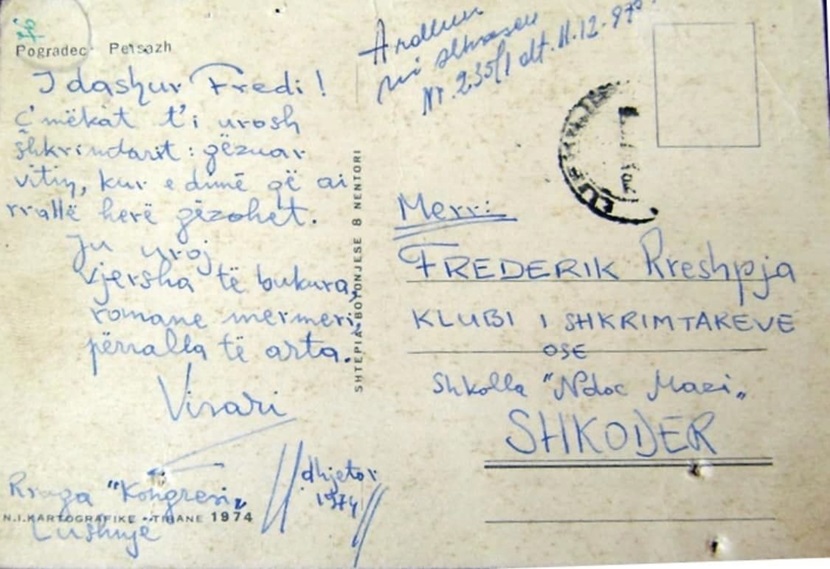 Pogradec Peisazh
I dashur Fredi!
Ç'mëkat t'i urosh
shkrimtarit: gëzuar
vitin, kur e dimë që ai
rrallë herë gëzohet.
Ju uroj
vjersha të bukura,
romane mermeri,
përralla të arta.
Visari
Rruga "Kongresi"
Lushnje
dhjetor
1974
N.I.KARTOGRAFIKE - TIRANE 1974
SHTEPIA BOTONJESE 8 NENTORI
Nr. 235/1 dt. 11-12-
Merr:
FREDERIK Rreshpja
KLUBI I SHKRIMTAREVE
OSE
Shkolla "Ndoc Mazi"
SHKODER